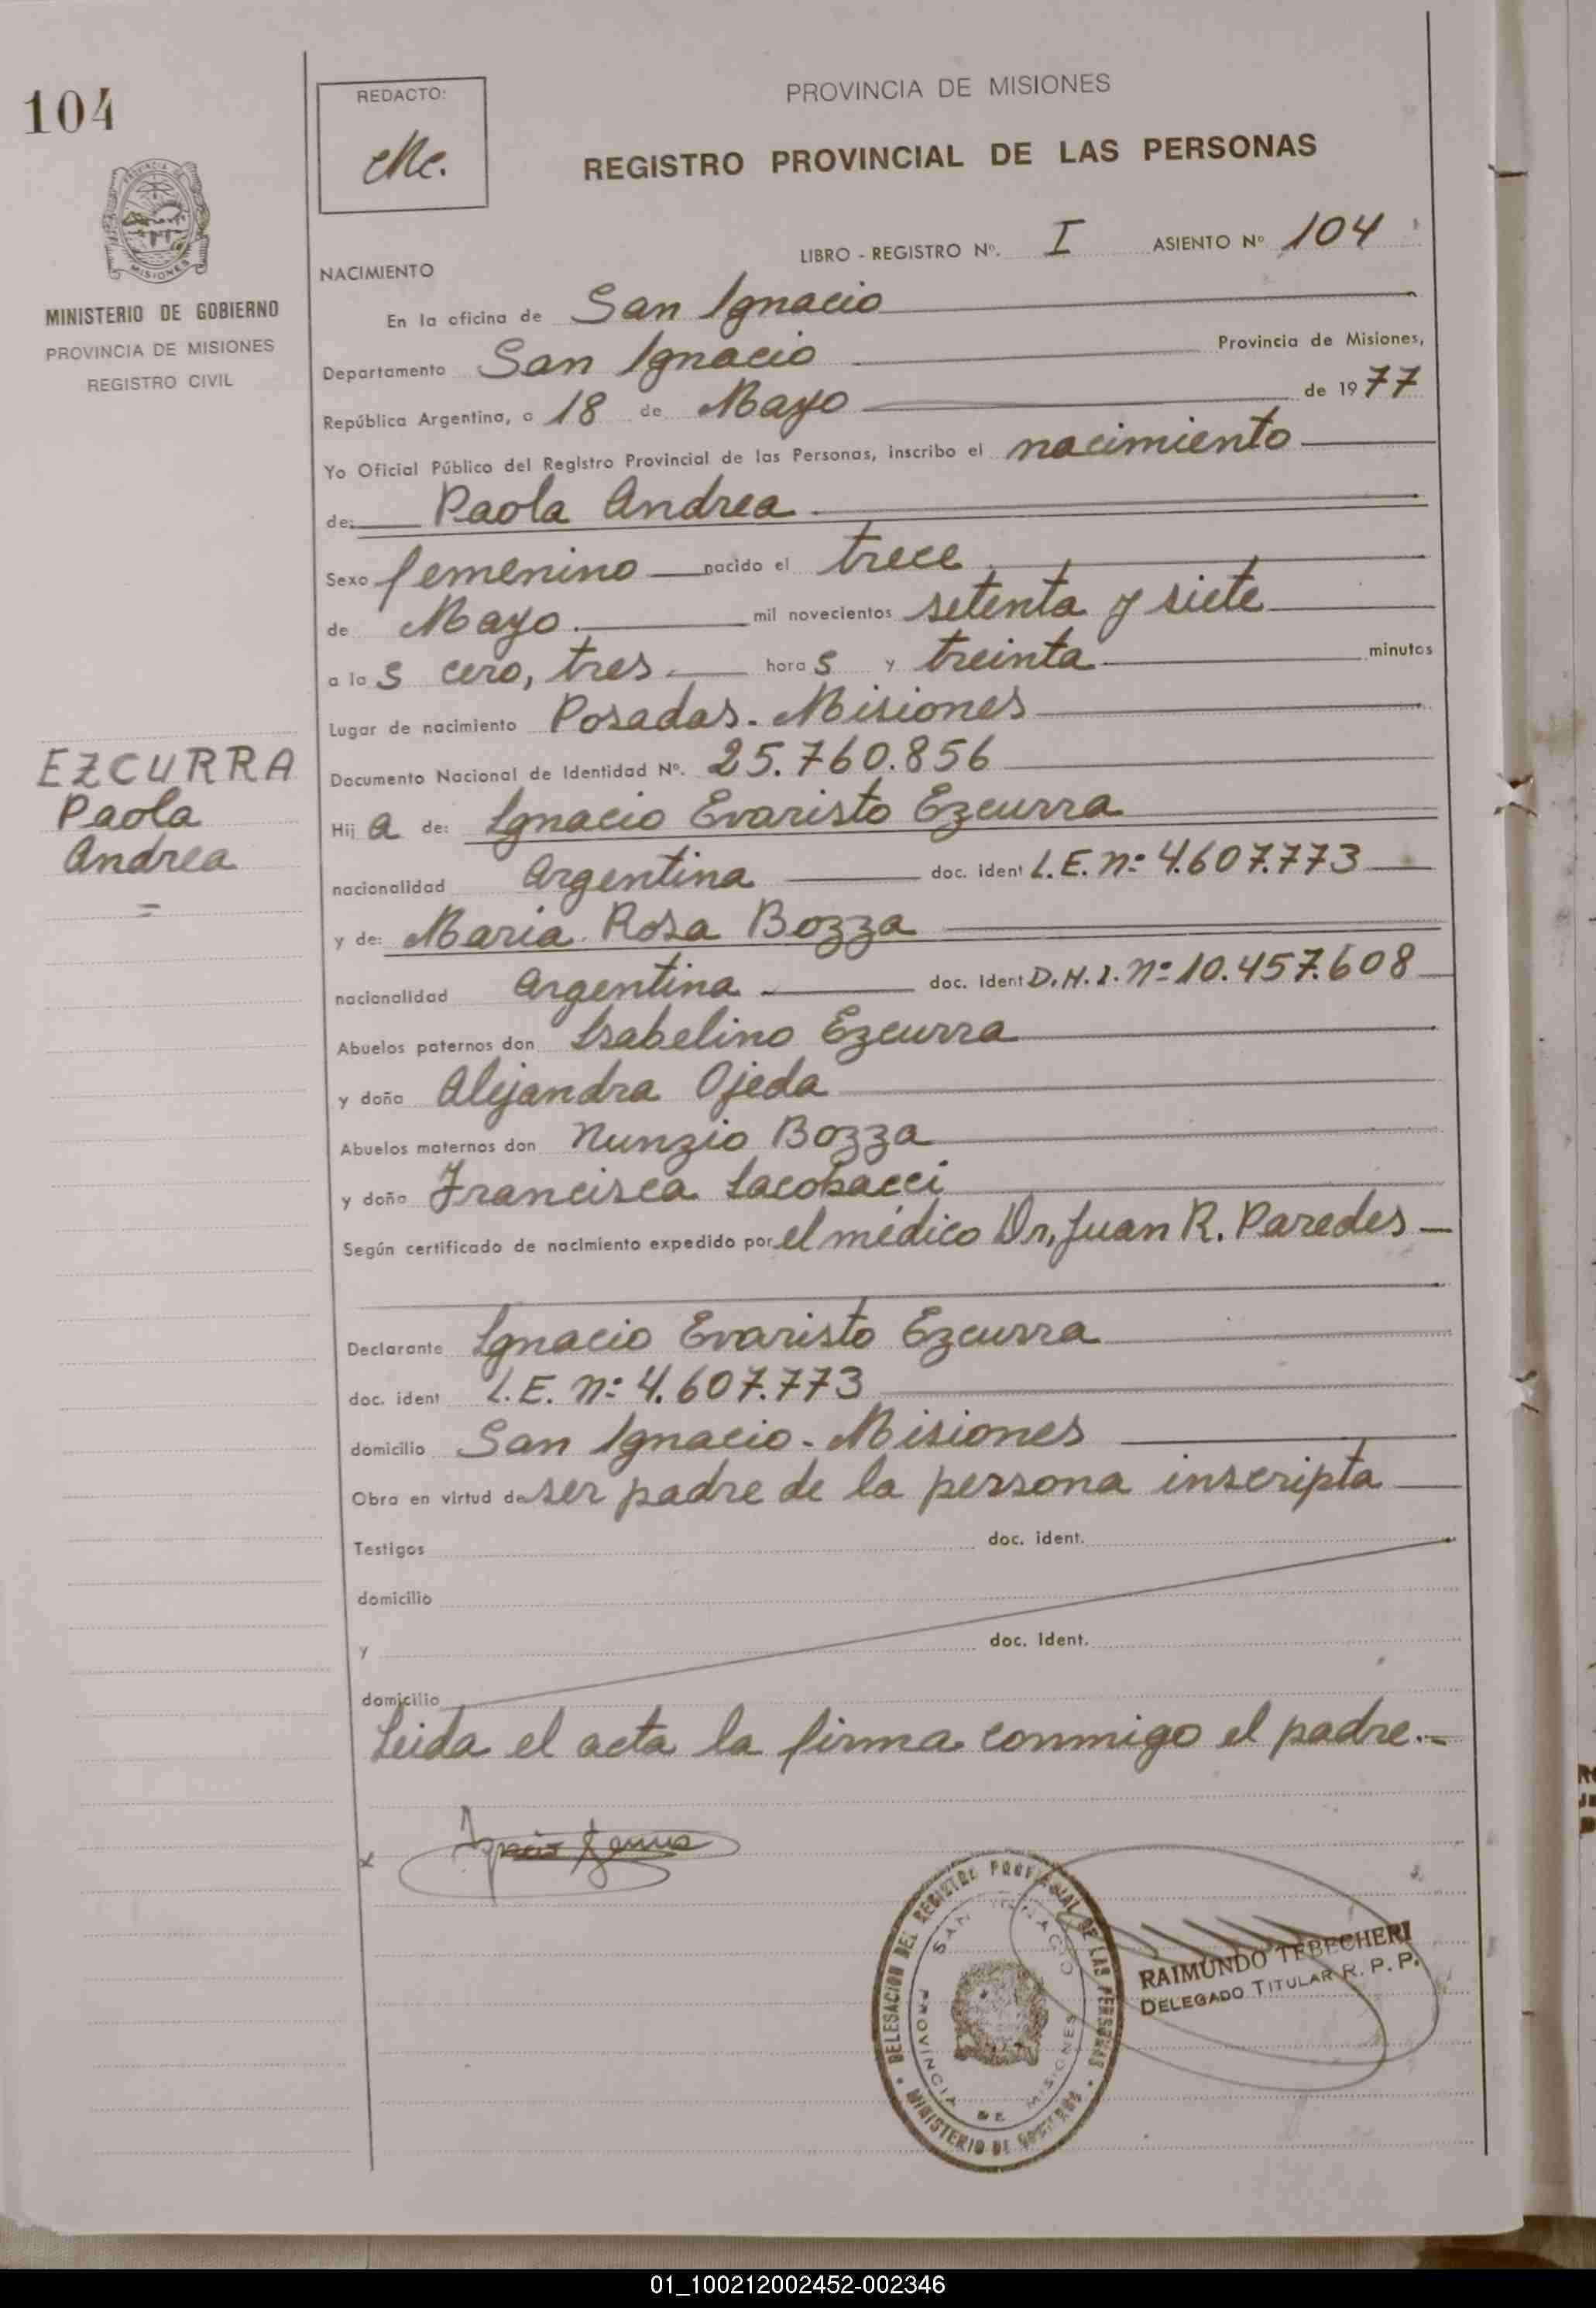 104
REDACTO:
PROVINCIA DE MISIONES
REGISTRO PROVINCIAL DE LAS PERSONAS
LIBRO - REGISTRO Nº. I ASIENTO Nº 104
MISIONES
MINISTERIO DE GOBIERNO
PROVINCIA DE MISIONES
REGISTRO CIVIL
NACIMIENTO
En la oficina de San Ignacio
Departamento San Ignacio Provincia de Misiones,
República Argentina, a 18 de Mayo de 1977
Yo Oficial Público del Registro Provincial de las Personas, inscribo el nacimiento
de: Paola Andrea
Sexo femenino nacido el trece
de Mayo. mil novecientos setenta y siete
a las cero, tres. horas y treinta minutos
Lugar de nacimiento Posadas. Misiones
EZCURRA
Paola
Andrea
=
Documento Nacional de Identidad Nº. 25.760.856
Hija de: Ignacio Evaristo Ezcurra
nacionalidad Argentina doc. ident L.E. nº 4.607.773
y de: Maria Rosa Bozza
nacionalidad Argentina doc. Ident D.N.I. nº 10.457.608
Abuelos paternos don Isabelino Ezcurra
y doña Alejandra Ojeda
Abuelos maternos don Nunzio Bozza
y doña Francisca Iacobacci
Según certificado de nacimiento expedido por el médico Dr, Juan R. Paredes
Declarante Ignacio Evaristo Ezcurra
doc. ident L.E. nº 4.607.773
domicilio San Ignacio. Misiones
Obra en virtud de ser padre de la persona inscripta
Testigos doc. ident.
domicilio
y doc. Ident.
domicilio
Leida el acta la firma conmigo el padre.=
x
DELEGACION DEL REGISTRO PROVINCIAL DE LAS PERSONAS
SAN IGNACIO
PROVINCIA DE MISIONES
MINISTERIO DE GOBIERNO
RAIMUNDO TEBECHERI
DELEGADO TITULAR R. P. P.
01_100212002452-002346